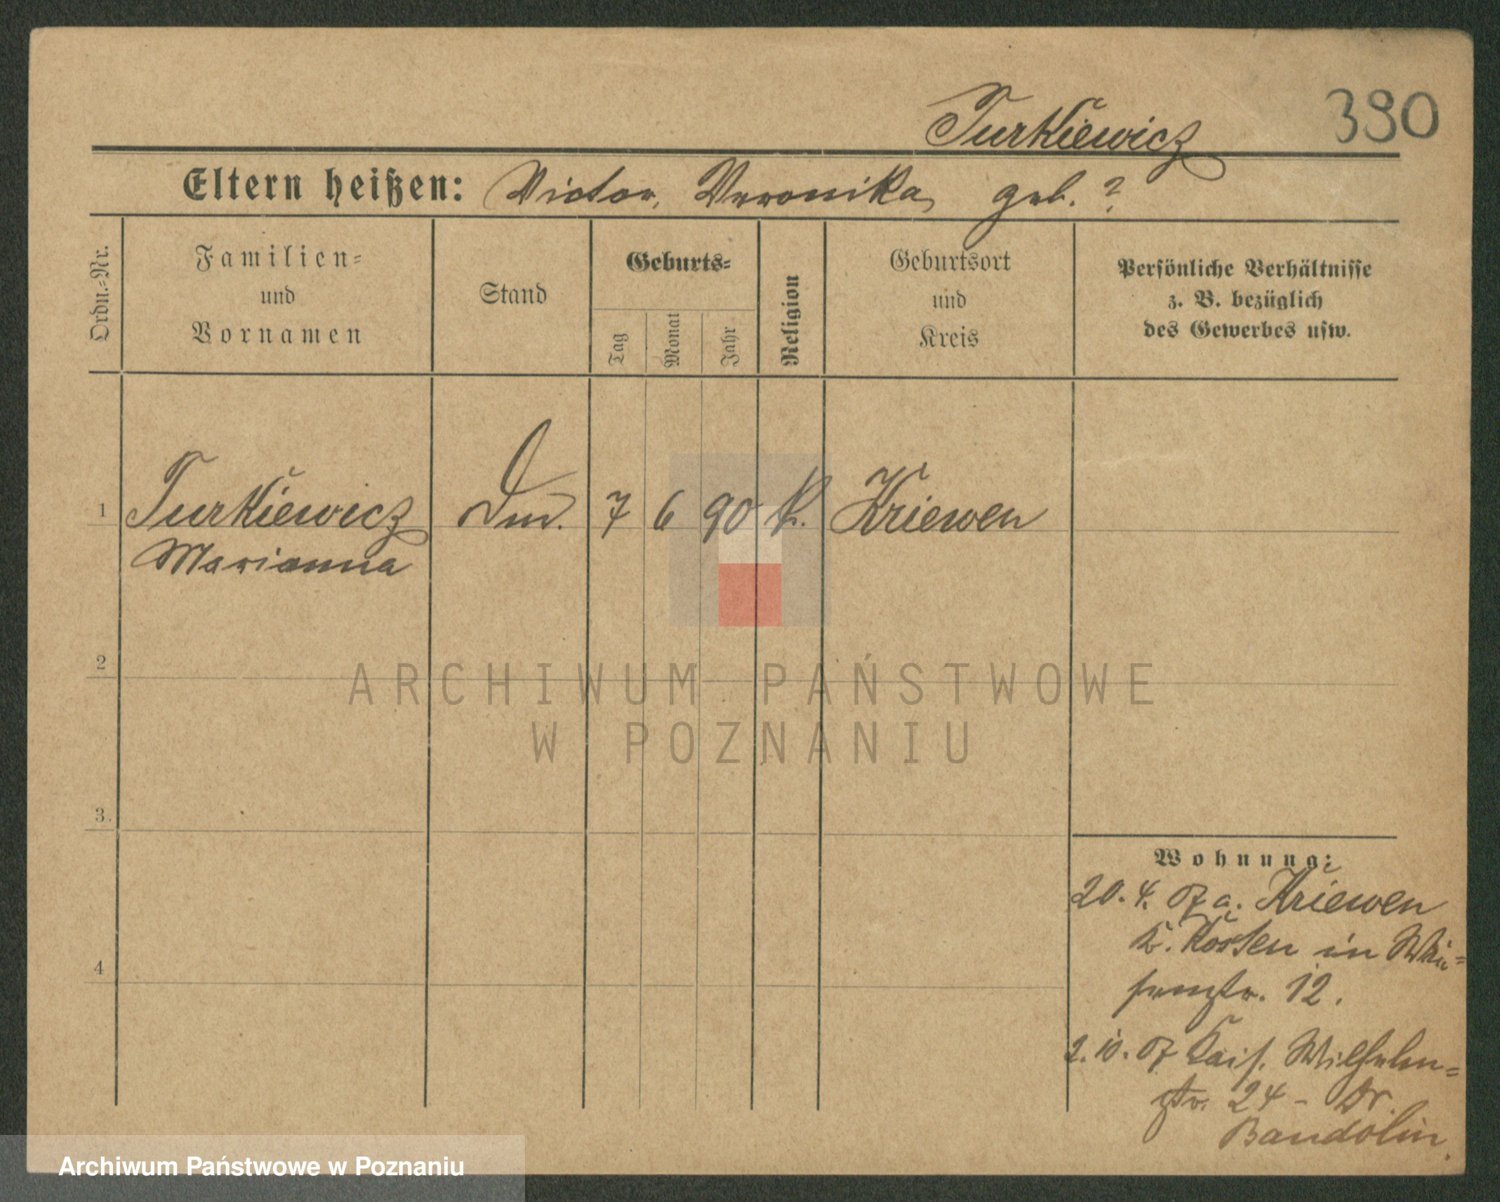 Turkiewicz
390
Eltern heißen: Victor, Veronika, geb. ?
Ordn.-Nr.
Familien-
und
Vornamen
Stand
Geburts-
Tag
Monat
Jahr
Religion
Geburtsort
und
Kreis
Persönliche Verhältnisse
z. B. bezüglich
des Gewerbes usw.
1 Turkiewicz 7 6 90 k. Kriewen
Marianna
2
3.
4
Wohnung:
20. 4. 07 a. Kriewen
K. Kosten in Wai-
senstr. 12.
2. 10. 07 Kais. Wilhelm-
str. 24 - Dr.
Bandolin.
ARCHIWUM PAŃSTWOWE
W POZNANIU
Archiwum Państwowe w Poznaniu